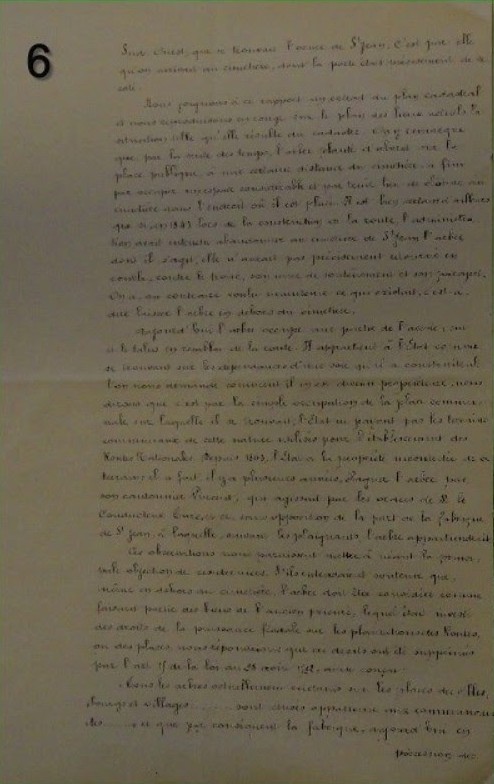 6
Sud Ouest, que se trouvait l'avenue de St Jean, c'est par elle
qu'on arrivait au cimetière, dont la porte était précisément de ce
coté.
Nous joignons à ce rapport un extrait du plan cadastral
et nous reproduisons en rouge sur le plan des lieux actuels la
situation telle qu'elle résulte du cadastre. On y remarque
que, par la suite des temps, l'arbre planté d'abord sur la
place publique, à une certaine distance du cimetière, a fini
par occuper un espace considérable et par tenir lieu de clôture au
cimetière dans l'endroit où il est placé. Il est bien certain d'ailleurs
que si, en 1843 lors de la construction de la route, l'administra
tion avait entendu abandonner au cimetière de St Jean l'arbre
dont il s'agit, elle n'aurait pas précisément retourné en
contre, le tronc, son mur de soutènement et son parapet.
On a, au contraire voulu maintenir ce qui existait, c'est-à-
dire laisser l'arbre en dehors du cimetière.
Aujourd'hui l'arbre occupe une partie de l'accotement
et le talus en remblai de la route. Il appartient à l'Etat comme
se trouvant sur les dépendances d'une voie qu'il a construite. Si
l'on nous demande comment il en est devenu propriétaire, nous
dirons que c'est par la simple occupation de la place commu-
nale sur laquelle il se trouvait, l'Etat ne payant pas les terrains
communaux de cette nature utilisés pour l'établissement des
Routes Nationales. Depuis 1843, l'Etat a la propriété incontestée de ce
terrain; il a fait, il y a plusieurs années, élaguer l'arbre par
son cantonnier, qui agissait par les ordres de M. le
Conducteur, sans opposition de la part de la fabrique
de St Jean, à laquelle, suivant les plaignants, l'arbre appartiendrait.
Ces observations nous paraissent mettre à néant la
objection de ces derniers. S'ils entendaient soutenir que,
même en dehors du cimetière, l'arbre doit être considéré comme
faisant partie des biens de l'ancien prieuré, lequel était investi
des droits de la puissance féodale sur les plantations des Routes,
ou des places nous répondrions que ces droits ont été supprimés
par l'art. de la loi du 28 août 1792, ainsi conçu:
"Tous les arbres actuellement existants sur les places des villes,
bourgs et villages ........ sont censés appartenir aux communau
tés ........ et que, par conséquent la fabrique, aujourd'hui en
possession des